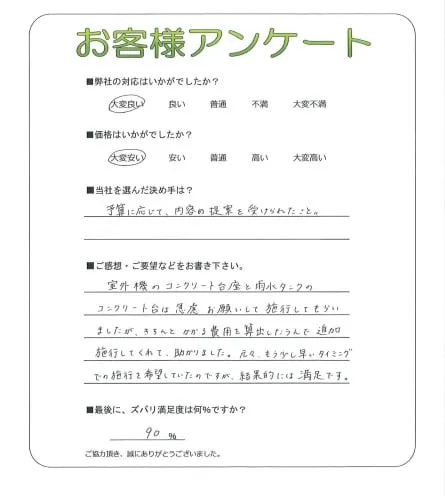 お客様アンケート
■弊社の対応はいかがでしたか？
大変良い 良い 普通 不満 大変不満
■価格はいかがでしたか？
大変安い 安い 普通 高い 大変高い
■当社を選んだ決め手は？
予算に応じて、内容の提案を受けられたこと。
■ご感想・ご要望などをお書き下さい。
室外機のコンクリート台座と雨水タンクの
コンクリート台は急慮お願いして施行してもらい
ましたが、きちんとかかる費用を算出したうえで追加
施行してくれて、助かりました。元々、もう少し早いタイミング
での施行を希望していたのですが、結果的には満足です。
■最後に、ズバリ満足度は何%ですか？
90 %
ご協力頂き、誠にありがとうございました。